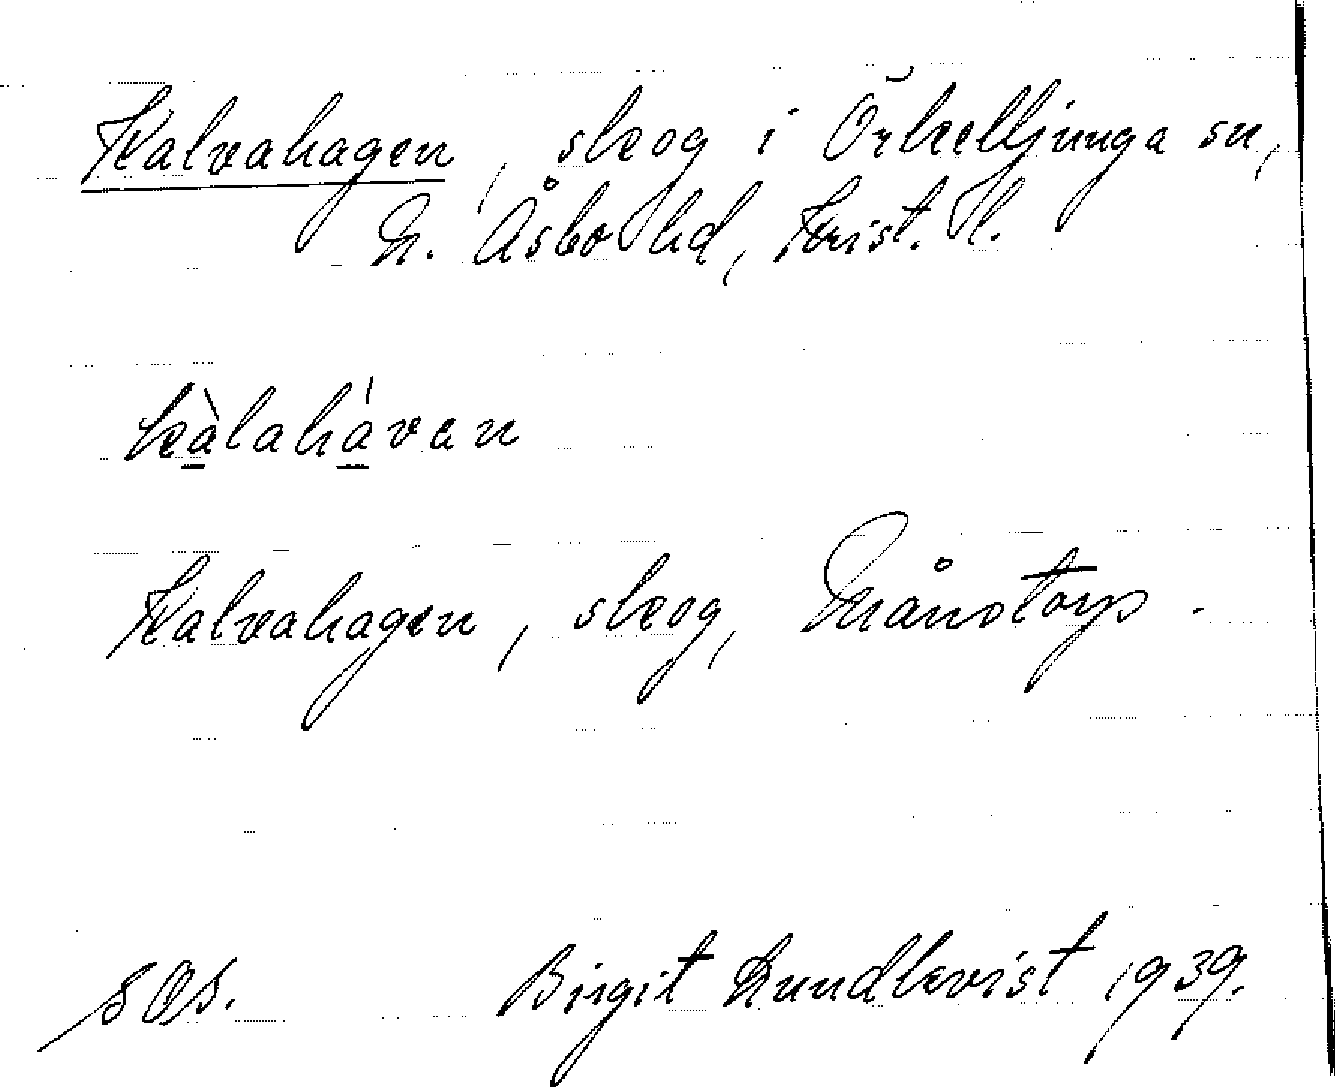 Kalvahagen, skog i Örkelljunga sn,
N. Åsbo hd, Krist. l.
kàlahávan
Kalvahagen, skog, Månstorp.
SOS. Birgit Lundkvist 1939.